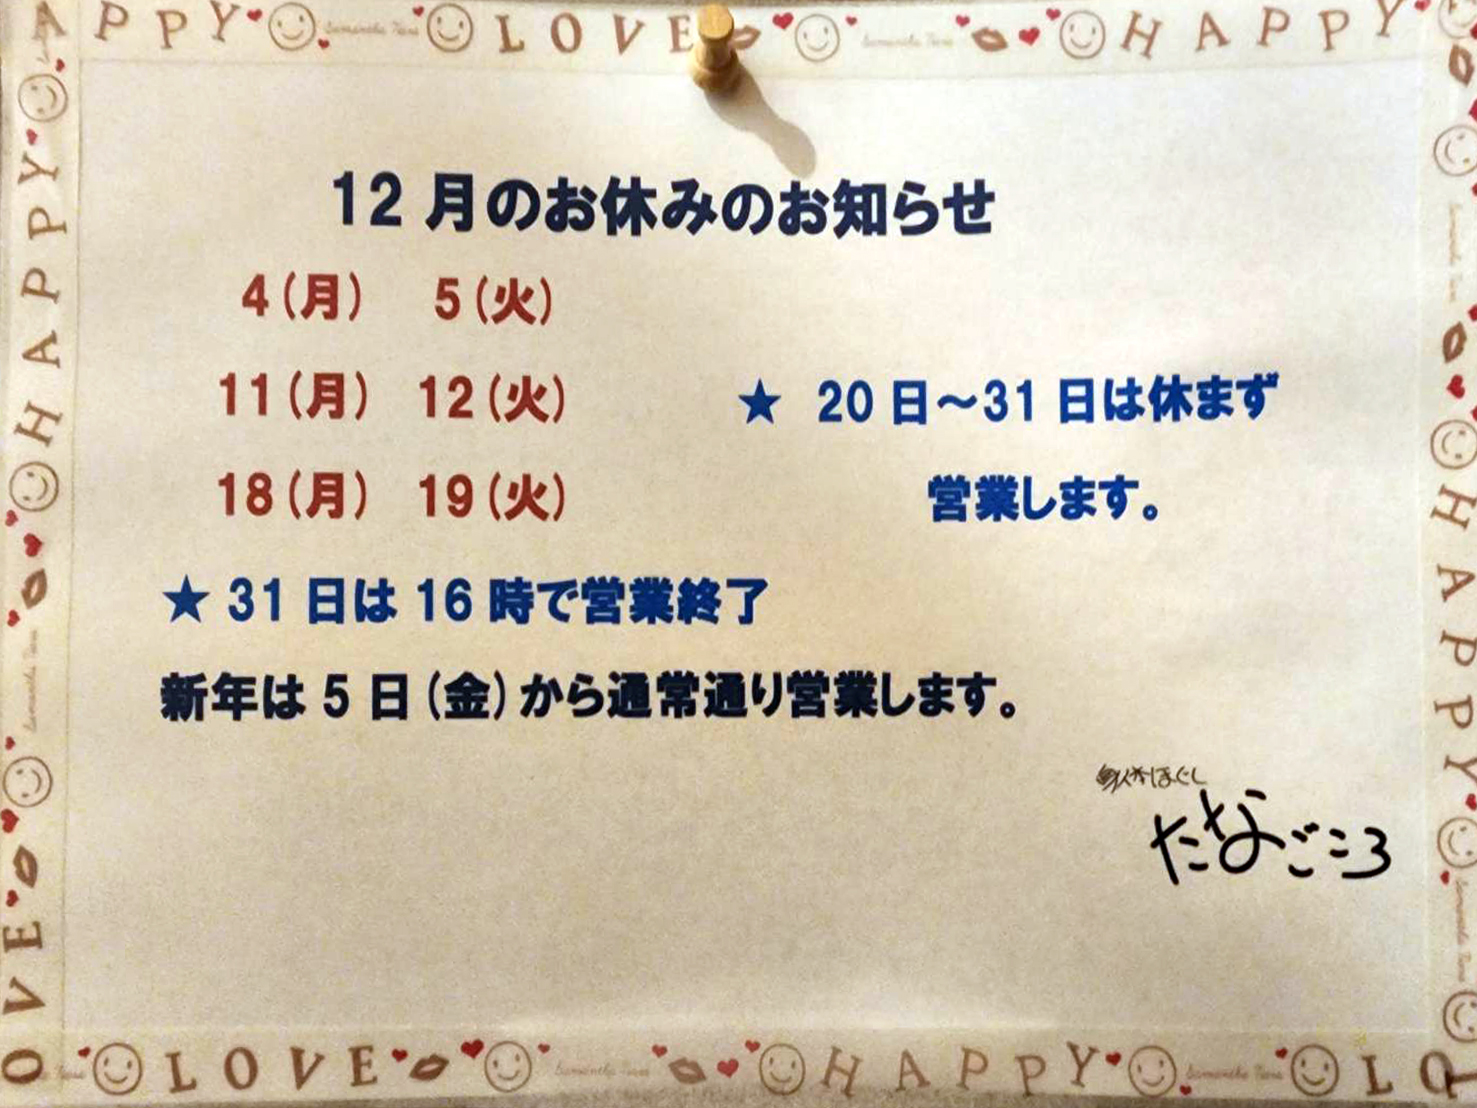 HAPPY LOVE Samantha Tiara HAPPY
12月のお休みのお知らせ
4(月) 5(火)
11(月) 12(火)
18(月) 19(火)
★ 20日～31日は休まず
営業します。
★ 31日は16時で営業終了
新年は5日(金)から通常通り営業します。
ほぐし
たなごころ
HAPPY
LOVE
HAPPY
LOVE Samantha Tiara HAPPY Samantha Tiara LO